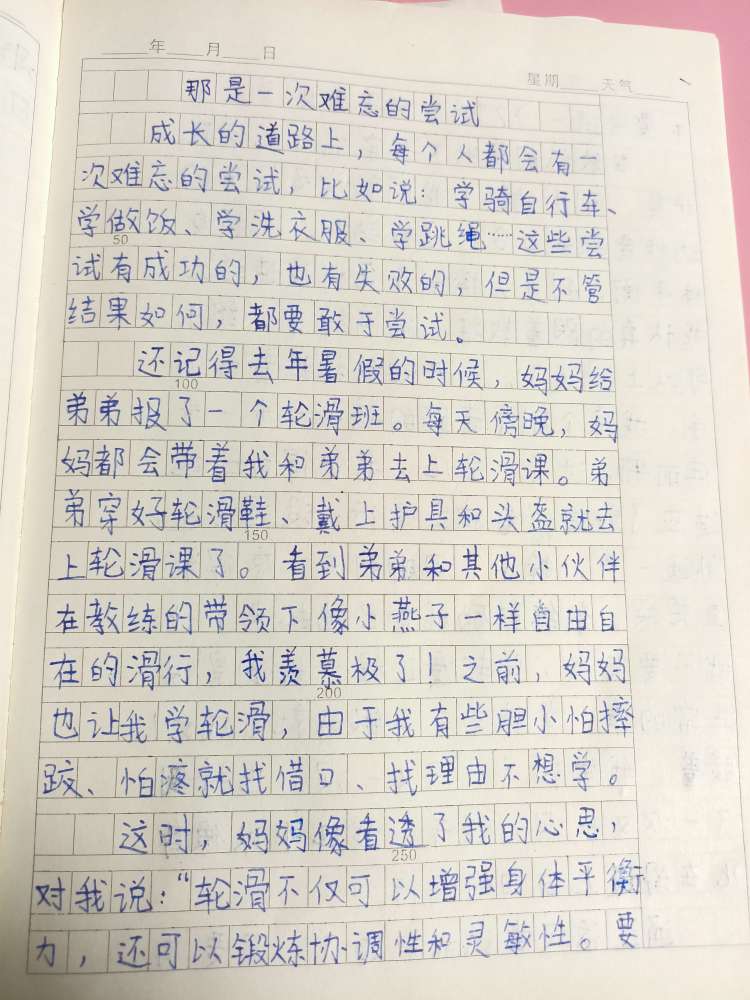 年 月 日
星期 天气
那是一次难忘的尝试
成长的道路上，每个人都会有一
次难忘的尝试，比如说：学骑自行车、
学做饭、学洗衣服、学跳绳……这些尝
50
试有成功的，也有失败的，但是不管
结果如何，都要敢于尝试。
还记得去年暑假的时候，妈妈给
100
弟弟报了一个轮滑班。每天傍晚，妈
妈都会带着我和弟弟去上轮滑课。弟
弟穿好轮滑鞋、戴上护具和头盔就去
150
上轮滑课了。看到弟弟和其他小伙伴
在教练的带领下像小燕子一样自由自
在的滑行，我羡慕极了！之前，妈妈
200
也让我学轮滑，由于我有些胆小怕摔
跤、怕疼就找借口、找理由不想学。
这时，妈妈像看透了我的心思，
250
对我说：“轮滑不仅可以增强身体平衡
力，还可以锻炼协调性和灵敏性。要